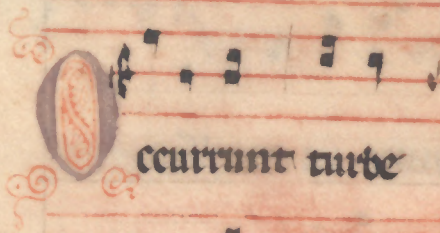 Occurrunt turbe